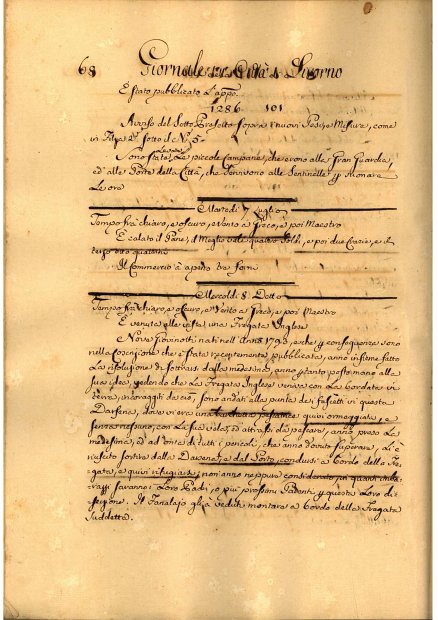 68 Giornale Città di Livorno
È stato pubblicato l'appo.
1286 101
Avviso del Sotto Prefetto sopra i nuovi Pesi, e Misure, come
in Filza sotto il N. 5
Sono state levate le piccole Campane, che erono alle Gran Guardie,
ed alle Porte della Città, che servivono alle Sentinelle p suonare
Le ore
Martedì 7 Luglio
Tempo frà chiaro, e oscuro, e Vento a Greco, e poi Maestro
È calato il Pane, il Meglio vale quattro Soldi, e poi due Crazie, e il
terzo otto quattrini
Il Commercio à aperto tre forni
Mercoldì 8 Detto
Tempo frà chiaro, e oscuro, e Vento a Greco, e poi Maestro
È venuta alle viste una Fregata Inglese
Nove Giovinotti nati nell'Anno 1793, e che p conseguenza sono
nella Coscrizione che è stata recentemente pubblicata, anno insieme fatto
La risoluzione di sottrarsi dalla medesima, anno p tanto posto mano alla
sua idea, vedendo che La Fregata Inglese veniva con La bordata in
terra, incoraggiti da ciò, sono andati alla punta de i fascetti in questa
Darsena, dove vi era una quivi ormeggiata, e
senza nessuno, con La sua vela, ed attrassi da pescare, anno preso La
medesima, ed ad onta di tutti i pericoli che anno dovuto superare, Li è
riuscito sortire dalla Darsena, e dal Porto, condursi a bordo della Fre-
gata, e quivi rifugiarsi, non anno neppure considerato in quanti imba-
razzi saranno i Loro Padri, o più prossimi Parenti p questa Loro di-
serzione. Il Fanalajo gli à veduti montare a bordo della Fregata
Suddetta.